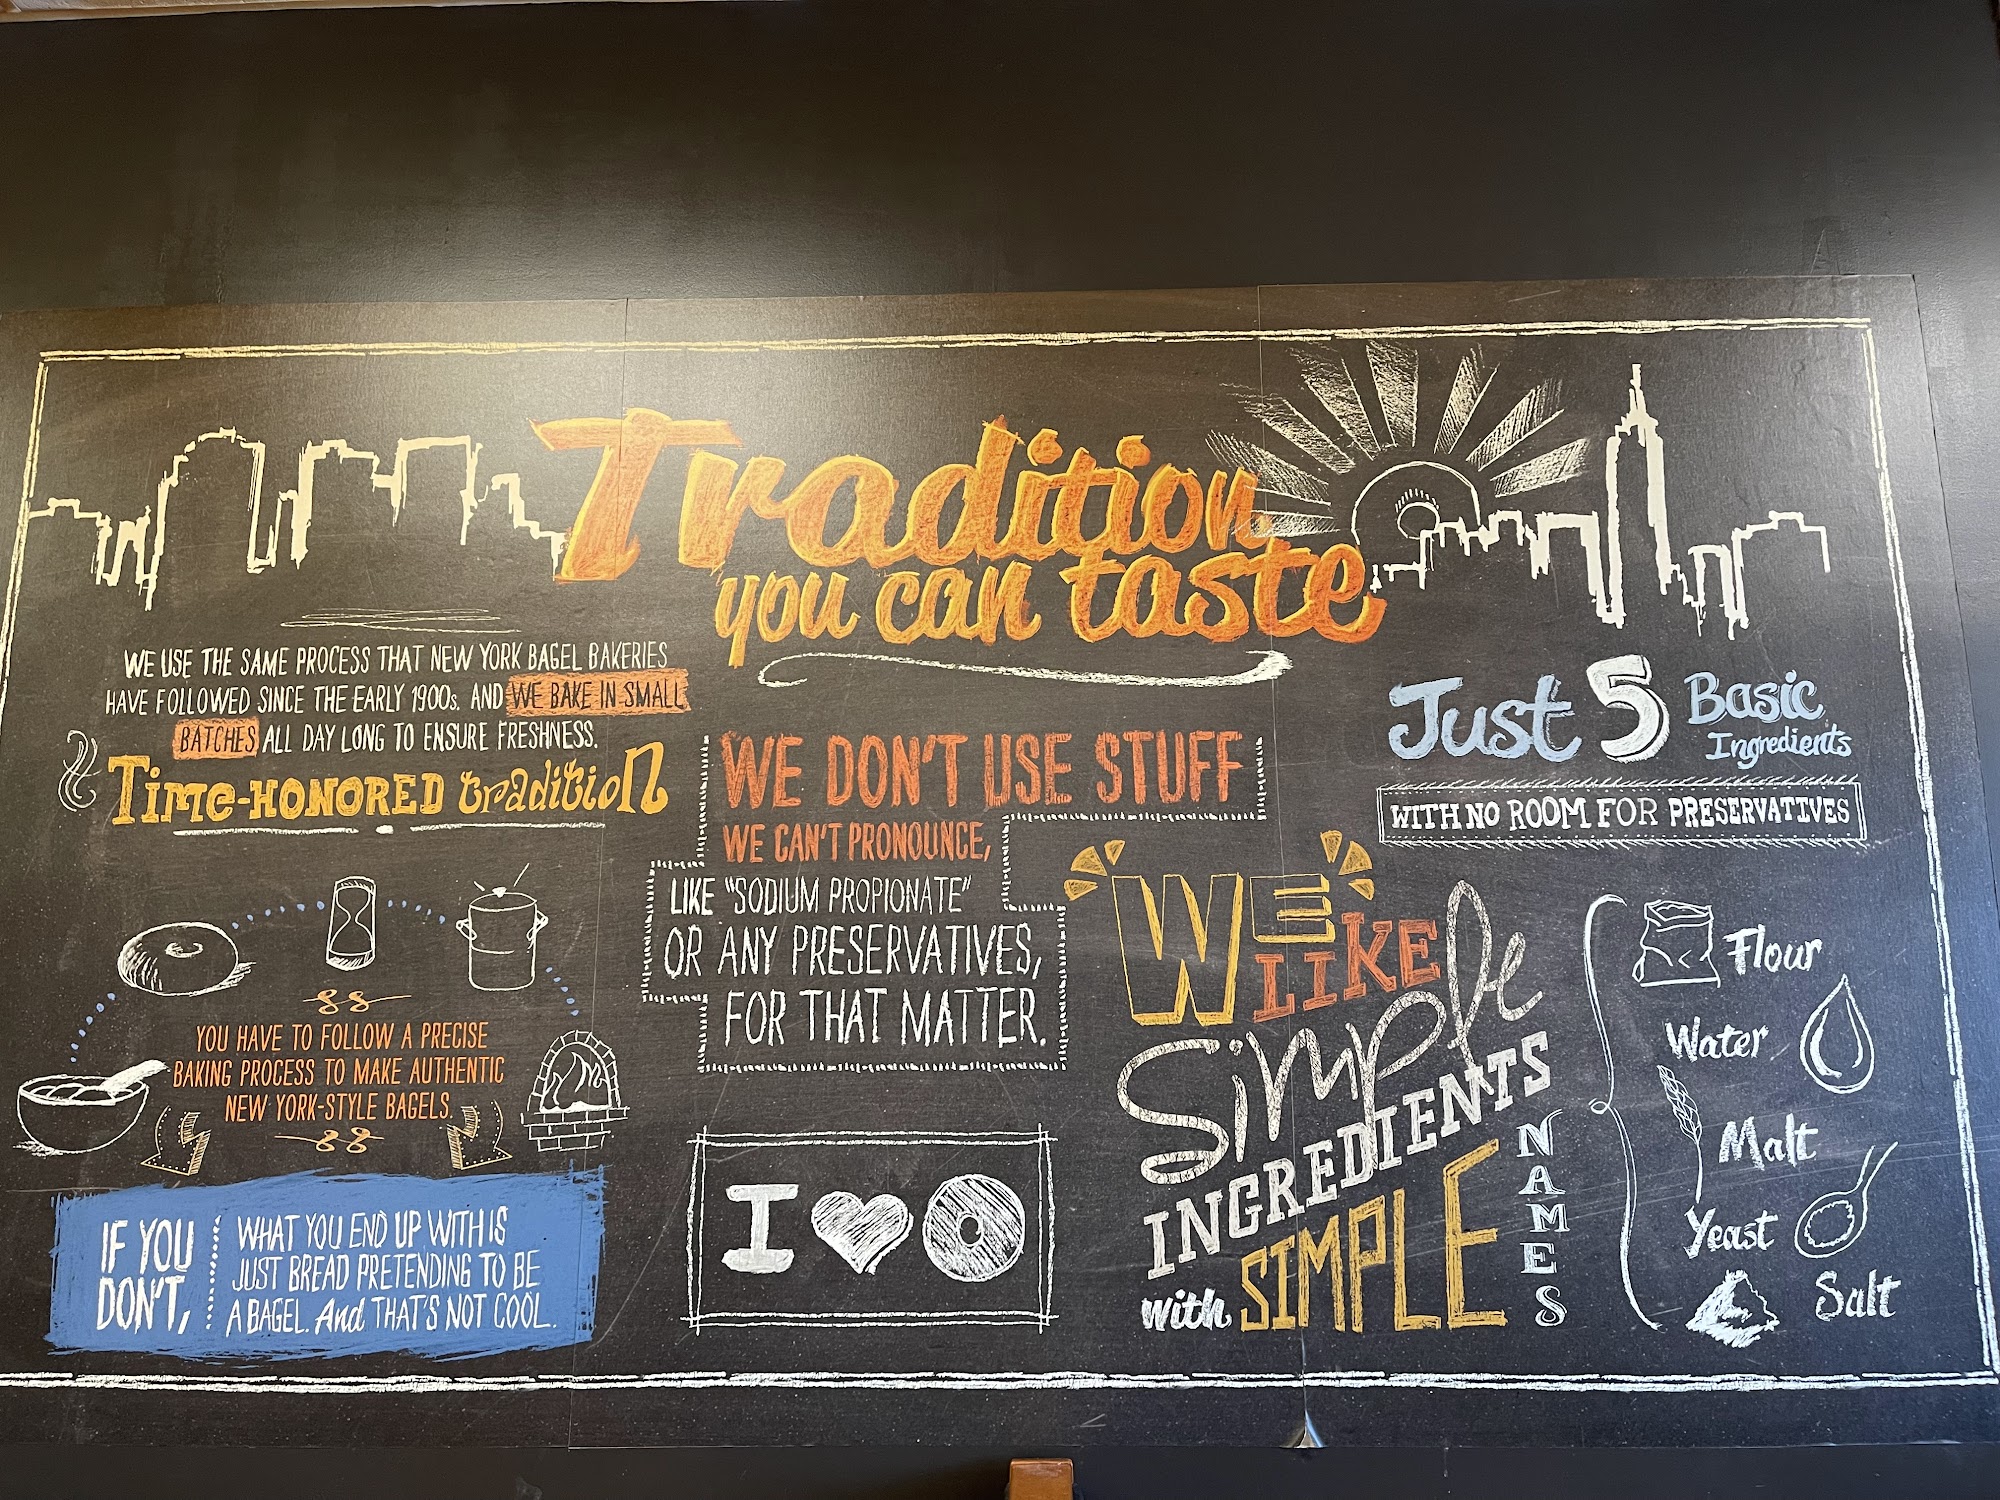 Tradition
you can taste
WE USE THE SAME PROCESS THAT NEW YORK BAGEL BAKERIES
HAVE FOLLOWED SINCE THE EARLY 1900s. AND WE BAKE IN SMALL
BATCHES ALL DAY LONG TO ENSURE FRESHNESS.
Time-HONORED tradition
YOU HAVE TO FOLLOW A PRECISE
BAKING PROCESS TO MAKE AUTHENTIC
NEW YORK-STYLE BAGELS.
IF YOU
DON'T,
WHAT YOU END UP WITH IS
JUST BREAD PRETENDING TO BE
A BAGEL. And THAT'S NOT COOL.
WE DON'T USE STUFF
WE CAN'T PRONOUNCE,
LIKE "SODIUM PROPIONATE"
OR ANY PRESERVATIVES,
FOR THAT MATTER.
I
WE
LIKE
Simple
INGREDIENTS
with SIMPLE
NAMES
Just 5 Basic
Ingredients
WITH NO ROOM FOR PRESERVATIVES
Flour
Water
Malt
Yeast
Salt